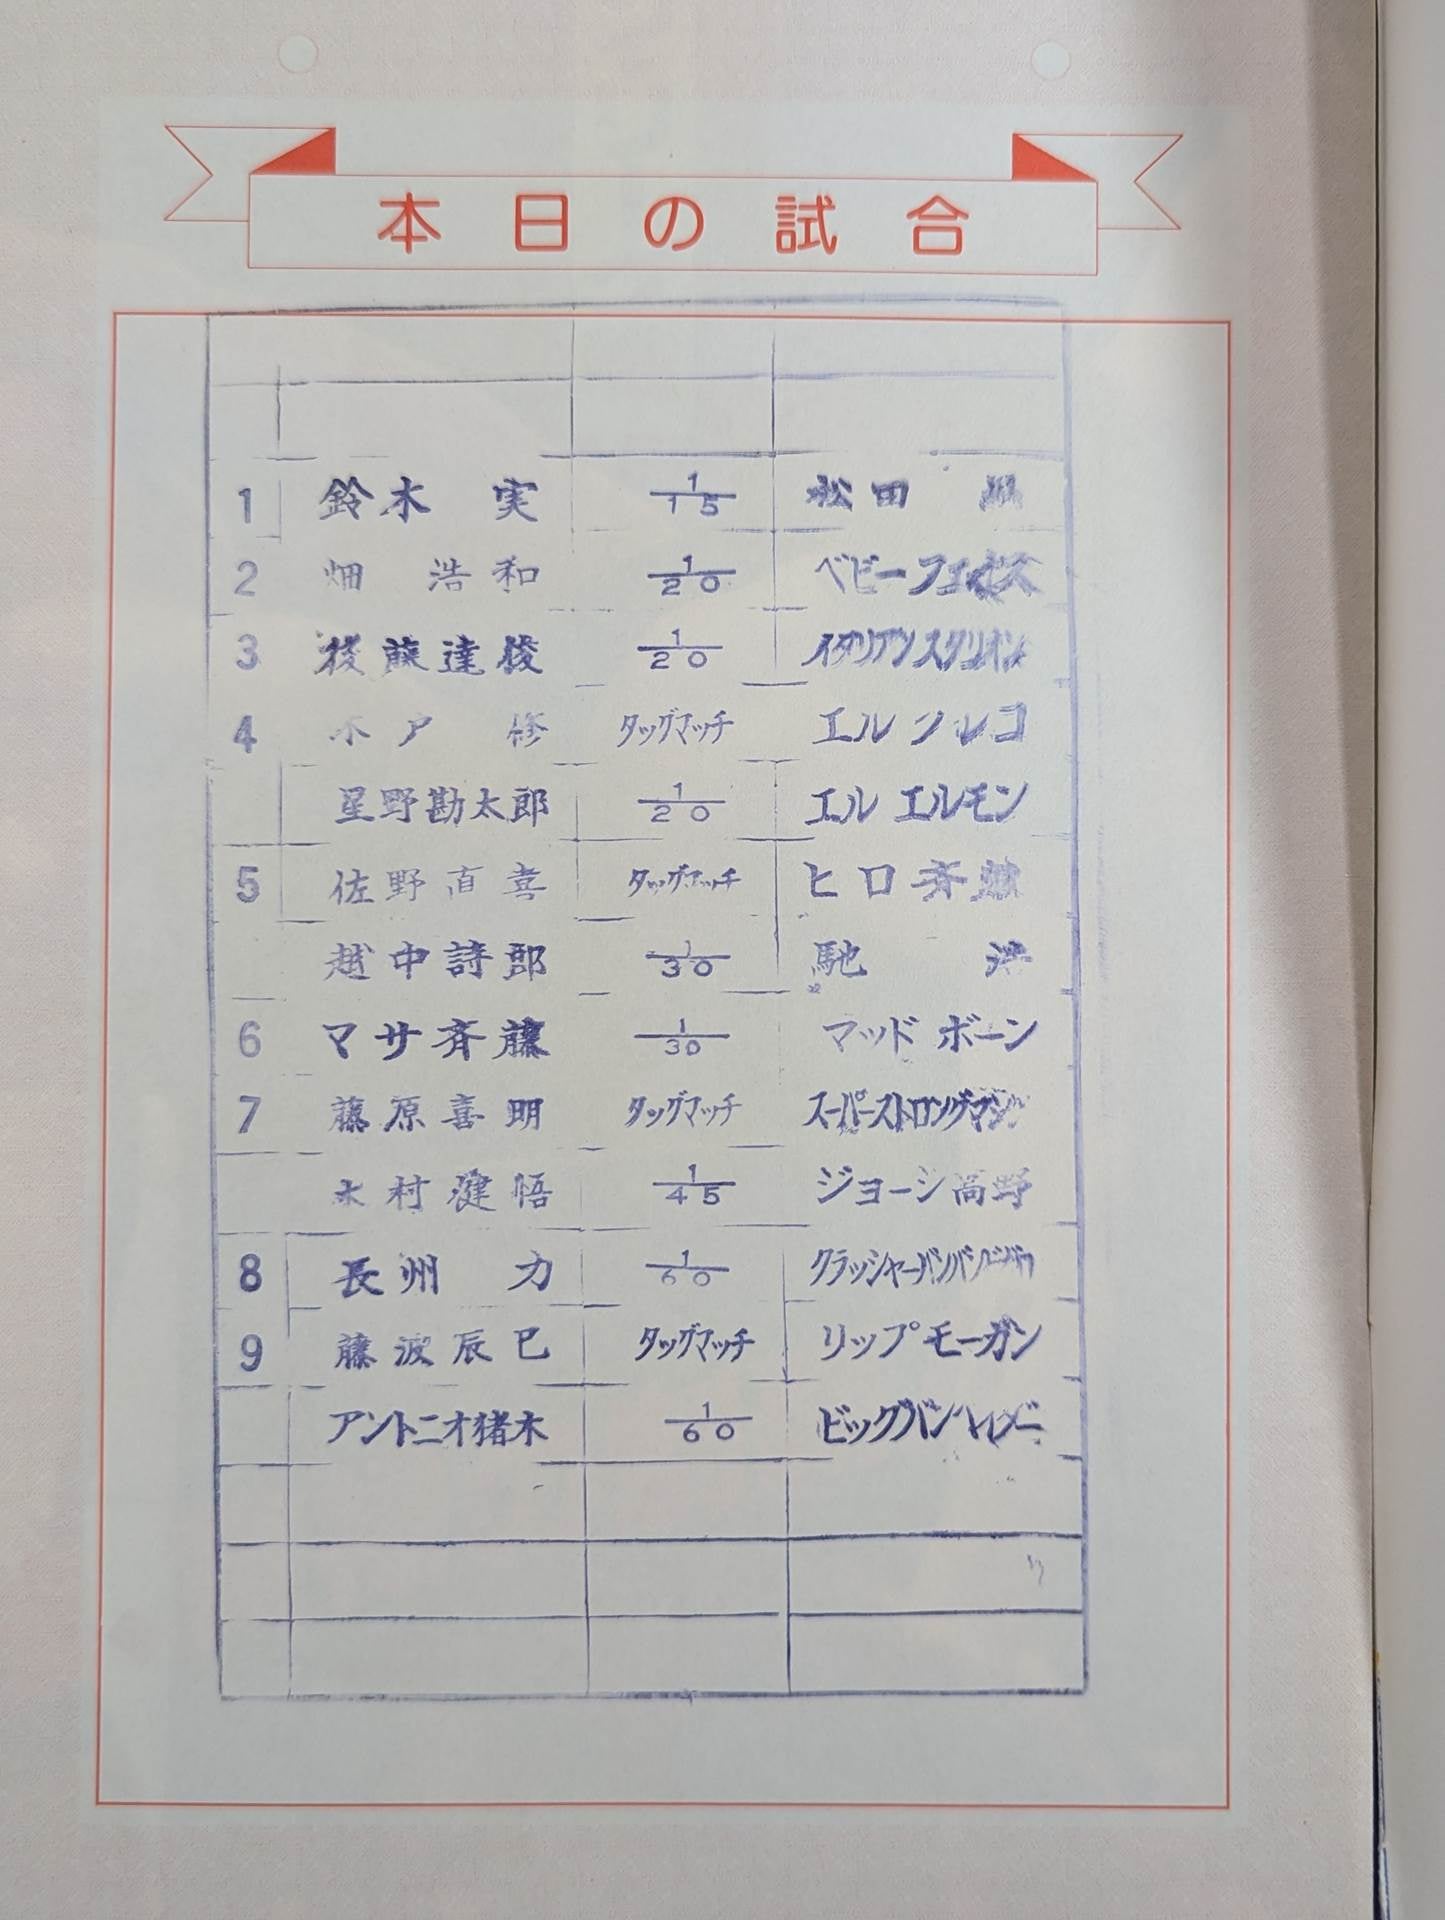 本日の試合
1 鈴木 実 1/15 松田
2 畑 浩和 1/20 ベビーフェイス
3 後藤達俊 1/20 イタリアンスタリオン
4 木戸 修 タッグマッチ エルソレコ
星野勘太郎 1/20 エル エルモン
5 佐野直喜 タッグマッチ ヒロ斉藤
越中詩郎 1/30 馳 浩
6 マサ斉藤 1/30 マッド ボーン
7 藤原喜明 タッグマッチ スーパーストロングマシン
木村健悟 1/45 ジョージ高野
8 長州 力 1/60 クラッシャーバンバンビガロ
9 藤波辰巳 タッグマッチ リップモーガン
アントニオ猪木 1/60 ビッグバン